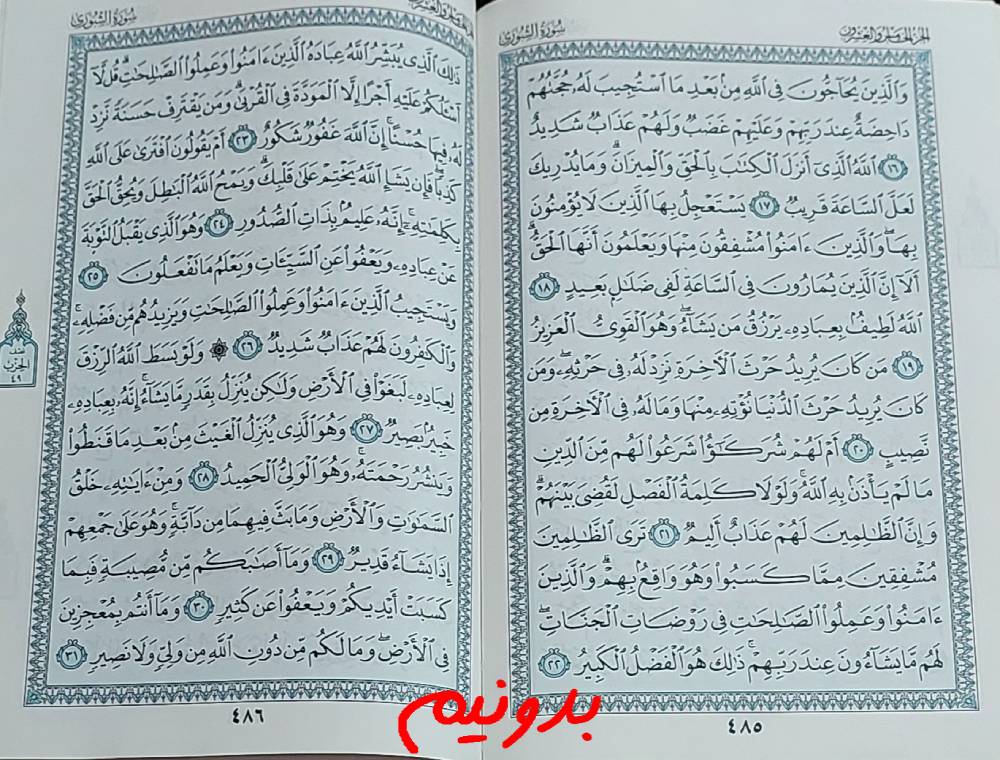 سُورَةُ الشُّورَىٰ
الجُزْءُ الخَامِسُ وَالعِشْرُونَ
وَالَّذِينَ يُحَآجُّونَ فِي اللَّهِ مِنۢ بَعْدِ مَا اسْتُجِيبَ لَهُۥ حُجَّتُهُمْ
دَاحِضَةٌ عِندَ رَبِّهِمْ وَعَلَيْهِمْ غَضَبٌ وَلَهُمْ عَذَابٌ شَدِيدٌ
١٦ اللَّهُ الَّذِىٓ أَنزَلَ الْكِتَٰبَ بِالْحَقِّ وَالْمِيزَانَ ۗ وَمَا يُدْرِيكَ
لَعَلَّ السَّاعَةَ قَرِيبٌ ١٧ يَسْتَعْجِلُ بِهَا الَّذِينَ لَا يُؤْمِنُونَ
بِهَا ۖ وَالَّذِينَ ءَامَنُوا مُشْفِقُونَ مِنْهَا وَيَعْلَمُونَ أَنَّهَا الْحَقُّ ۗ
أَلَآ إِنَّ الَّذِينَ يُمَارُونَ فِى السَّاعَةِ لَفِى ضَلَٰلٍۭ بَعِيدٍ ١٨
اللَّهُ لَطِيفٌۢ بِعِبَادِهِۦ يَرْزُقُ مَن يَشَآءُ ۖ وَهُوَ الْقَوِىُّ الْعَزِيزُ
١٩ مَن كَانَ يُرِيدُ حَرْثَ الْأَخِرَةِ نَزِدْ لَهُۥ فِى حَرْثِهِۦ ۖ وَمَن
كَانَ يُرِيدُ حَرْثَ الدُّنْيَا نُؤْتِهِۦ مِنْهَا وَمَا لَهُۥ فِى الْأَخِرَةِ مِن
نَّصِيبٍ ٢٠ أَمْ لَهُمْ شُرَكَٰٓؤُا شَرَعُوا لَهُم مِّنَ الدِّينِ
مَا لَمْ يَأْذَنۢ بِهِ اللَّهُ ۚ وَلَوْلَا كَلِمَةُ الْفَصْلِ لَقُضِىَ بَيْنَهُمْ ۗ
وَإِنَّ الظَّٰلِمِينَ لَهُمْ عَذَابٌ أَلِيمٌ ٢١ تَرَى الظَّٰلِمِينَ
مُشْفِقِينَ مِمَّا كَسَبُوا وَهُوَ وَاقِعٌۢ بِهِمْ ۗ وَالَّذِينَ
ءَامَنُوا وَعَمِلُوا الصَّٰلِحَٰتِ فِى رَوْضَاتِ الْجَنَّاتِ ۖ
لَهُم مَّا يَشَآءُونَ عِندَ رَبِّهِمْ ۚ ذَٰلِكَ هُوَ الْفَضْلُ الْكَبِيرُ ٢٢
٤٨٥
سُورَةُ الشُّورَىٰ
ذَٰلِكَ الَّذِى يُبَشِّرُ اللَّهُ عِبَادَهُ الَّذِينَ ءَامَنُوا وَعَمِلُوا الصَّٰلِحَٰتِ ۗ قُل لَّآ
أَسْـَٔلُكُمْ عَلَيْهِ أَجْرًا إِلَّا الْمَوَدَّةَ فِى الْقُرْبَىٰ ۗ وَمَن يَقْتَرِفْ حَسَنَةً نَّزِدْ
لَهُۥ فِيهَا حُسْنًا ۚ إِنَّ اللَّهَ غَفُورٌ شَكُورٌ ٢٣ أَمْ يَقُولُونَ افْتَرَىٰ عَلَى اللَّهِ
كَذِبًا ۖ فَإِن يَشَإِ اللَّهُ يَخْتِمْ عَلَىٰ قَلْبِكَ ۗ وَيَمْحُ اللَّهُ الْبَٰطِلَ وَيُحِقُّ الْحَقَّ
بِكَلِمَٰتِهِۦٓ ۚ إِنَّهُۥ عَلِيمٌۢ بِذَاتِ الصُّدُورِ ٢٤ وَهُوَ الَّذِى يَقْبَلُ التَّوْبَةَ
عَنْ عِبَادِهِۦ وَيَعْفُوا عَنِ السَّيِّـَٔاتِ وَيَعْلَمُ مَا تَفْعَلُونَ ٢٥
وَيَسْتَجِيبُ الَّذِينَ ءَامَنُوا وَعَمِلُوا الصَّٰلِحَٰتِ وَيَزِيدُهُم مِّن فَضْلِهِۦ ۚ
وَالْكَٰفِرُونَ لَهُمْ عَذَابٌ شَدِيدٌ ٢٦ ۞ وَلَوْ بَسَطَ اللَّهُ الرِّزْقَ
لِعِبَادِهِۦ لَبَغَوْا فِى الْأَرْضِ وَلَٰكِن يُنَزِّلُ بِقَدَرٍ مَّا يَشَآءُ ۚ إِنَّهُۥ بِعِبَادِهِۦ
خَبِيرٌۢ بَصِيرٌ ٢٧ وَهُوَ الَّذِى يُنَزِّلُ الْغَيْثَ مِنۢ بَعْدِ مَا قَنَطُوا
وَيَنشُرُ رَحْمَتَهُۥ ۚ وَهُوَ الْوَلِىُّ الْحَمِيدُ ٢٨ وَمِنْ ءَايَٰتِهِۦ خَلْقُ
السَّمَٰوَٰتِ وَالْأَرْضِ وَمَا بَثَّ فِيهِمَا مِن دَآبَّةٍ ۚ وَهُوَ عَلَىٰ جَمْعِهِمْ
إِذَا يَشَآءُ قَدِيرٌ ٢٩ وَمَآ أَصَٰبَكُم مِّن مُّصِيبَةٍ فَبِمَا
كَسَبَتْ أَيْدِيكُمْ وَيَعْفُوا عَن كَثِيرٍ ٣٠ وَمَآ أَنتُم بِمُعْجِزِينَ
فِى الْأَرْضِ ۖ وَمَا لَكُم مِّن دُونِ اللَّهِ مِن وَلِىٍّ وَلَا نَصِيرٍ ٣١
نصف
الحزب
٤٩
٤٨٦
بدونیم